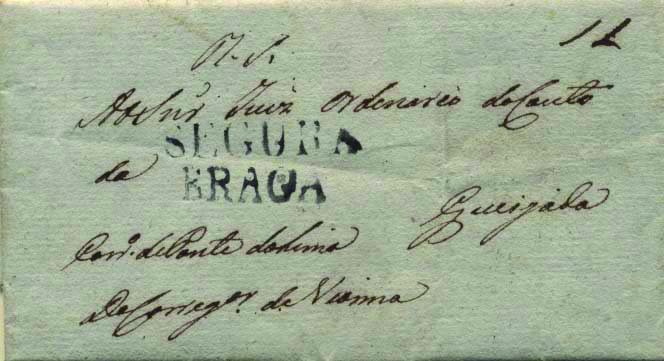 11
N. S.
Ao Snr Juiz Ordenareo do Couto
SEGURA
de
BRAGA
Queijada
Corr.o de Ponte do Lima
Do Correg.or de Vianna